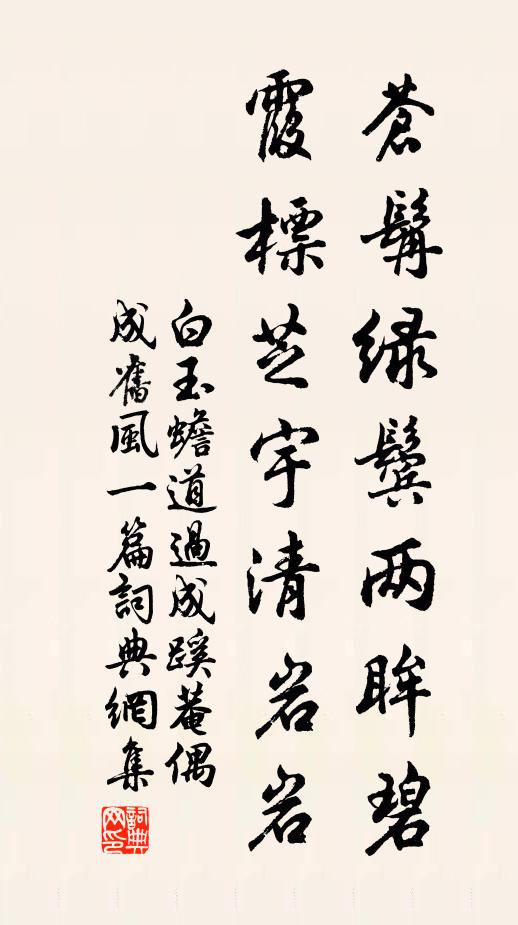 蒼髯绿鬓两眸碧
霞標芝宇清岩岩
白玉蟾道過成蹊菴偶
成舊風一篇詞典網集
詞典网印